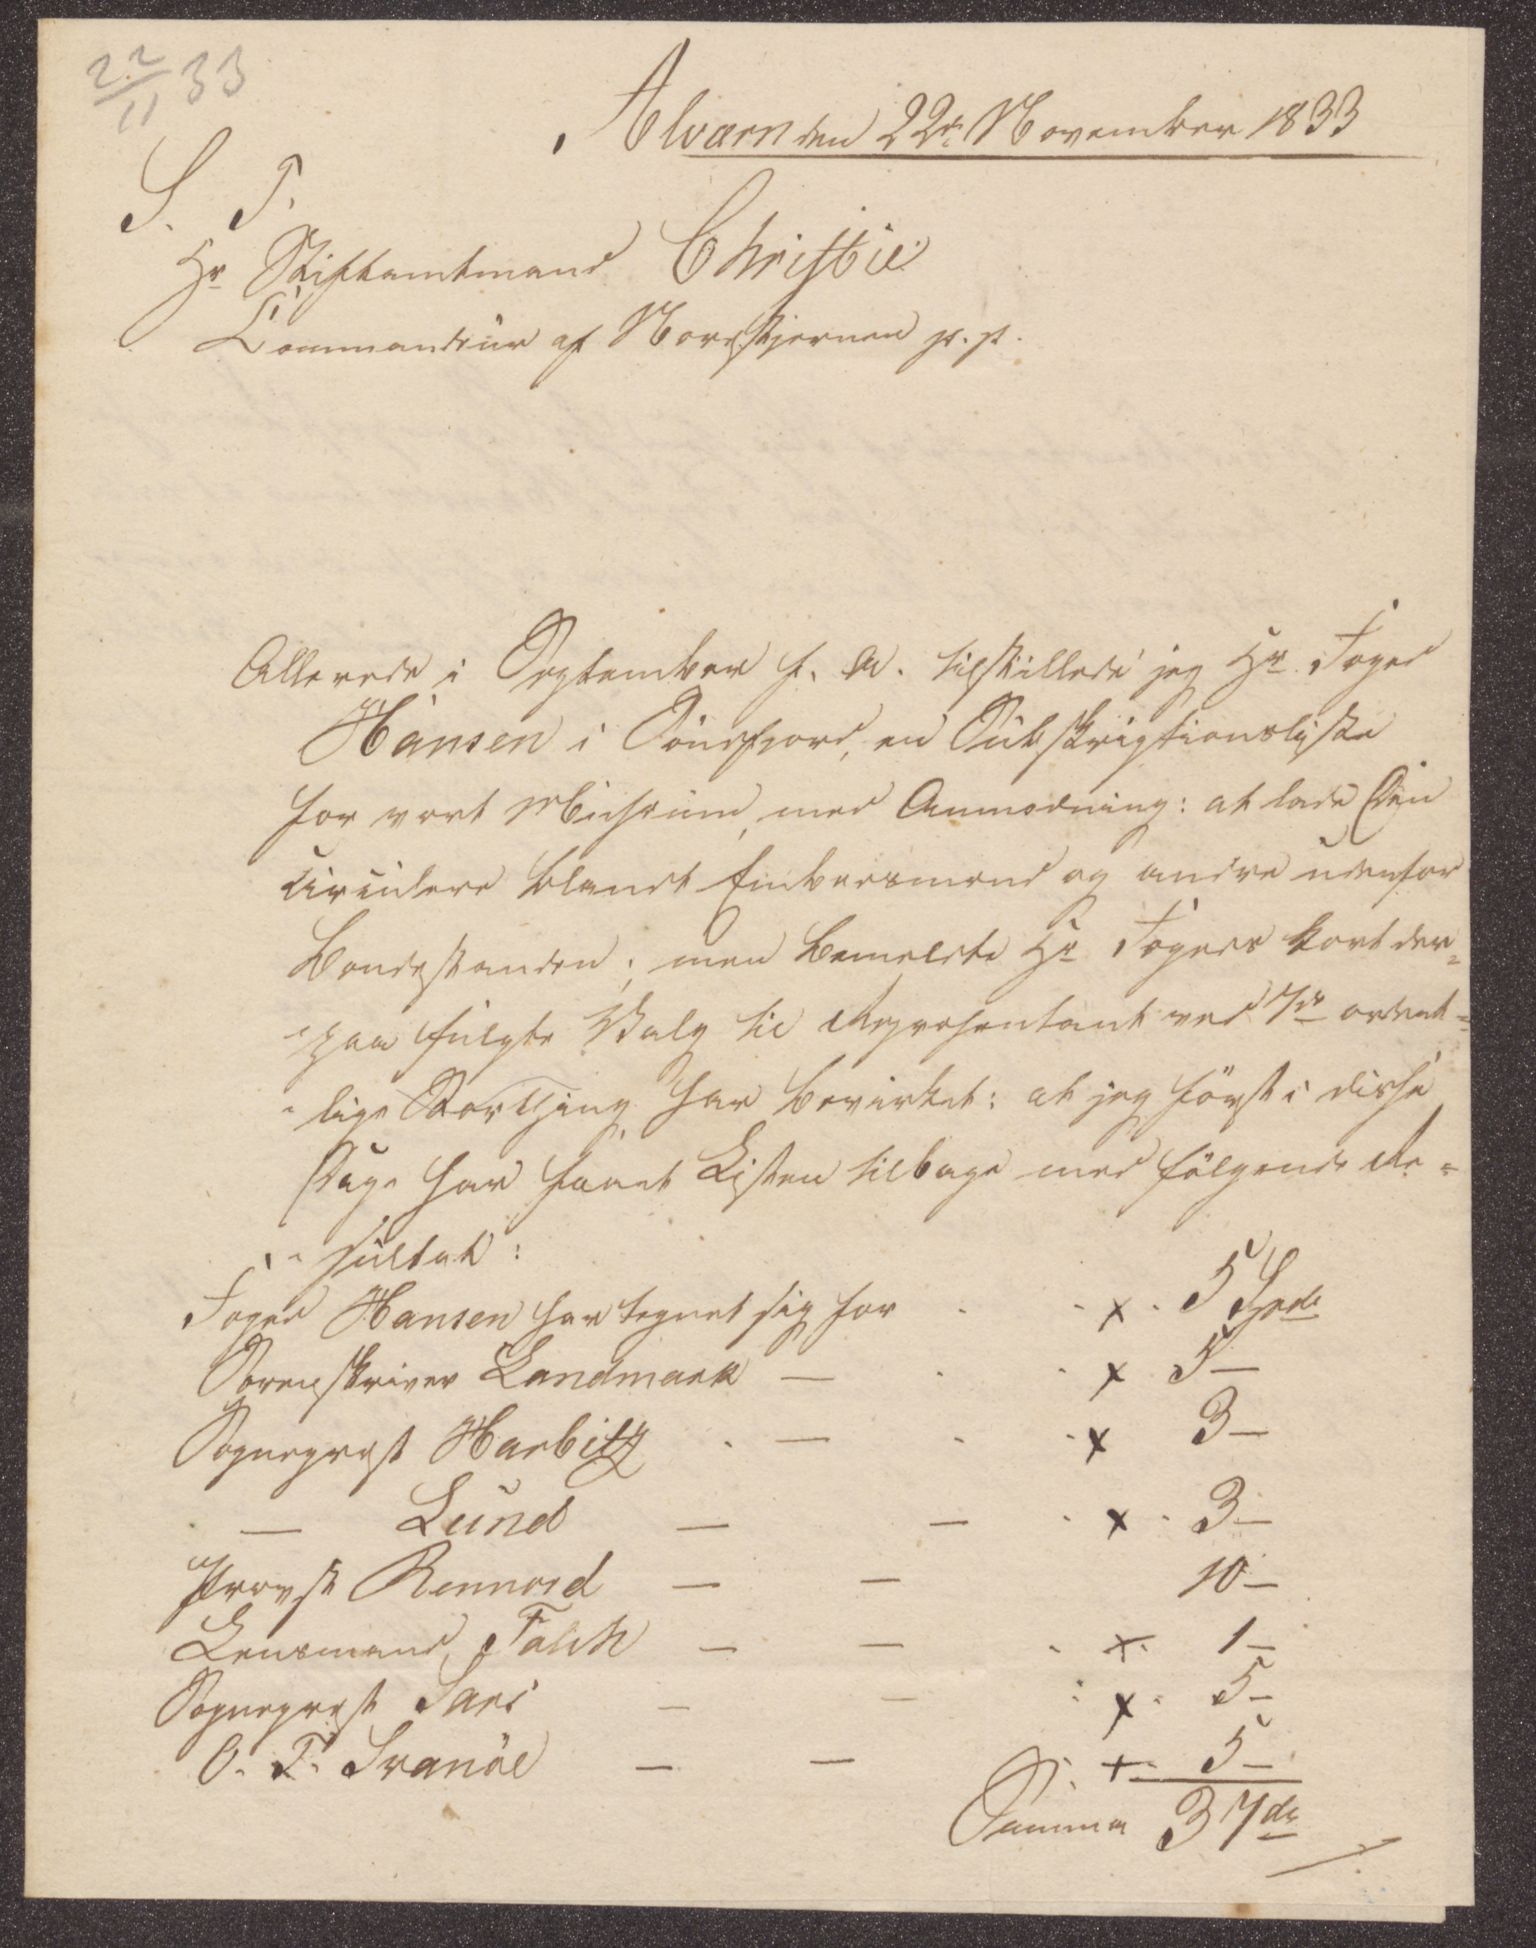 22/11 33
Alværn den 22de November 1833
S. T.
Hr Stiftamtmand Christie
Commandeur af Nordstjernen p. p.
Allerede i September f. A. tilstillede jeg Hr. Foged
Hansen i Söndfjord, en Subskriptionsliste
for vort Musæum, med Anmodning: at lade den
circulere blandt Embedsmænd og andre udenfor
Bondestanden; men bemeldte Hr Fogeds kort der-
paa fulgte Valg til Repræsentant ved 7de ordent-
lige Storthing har bevirket: at jeg först i disse
Dage har faaet Listen tilbage med fölgende Re-
sultat:
Foged Hansen har tegnet sig for x 5 Spd
Sorenskriver Landmark — x 5 —
Sognepræst Harbitz — x 3 —
— Lund — — x 3 —
Provst Rennord — — 10 —
Lensmand Falch — — x 1 —
Sognepræst Sars — — x 5 —
O. T. Svanöe — — + 5 —
Summa 37 de